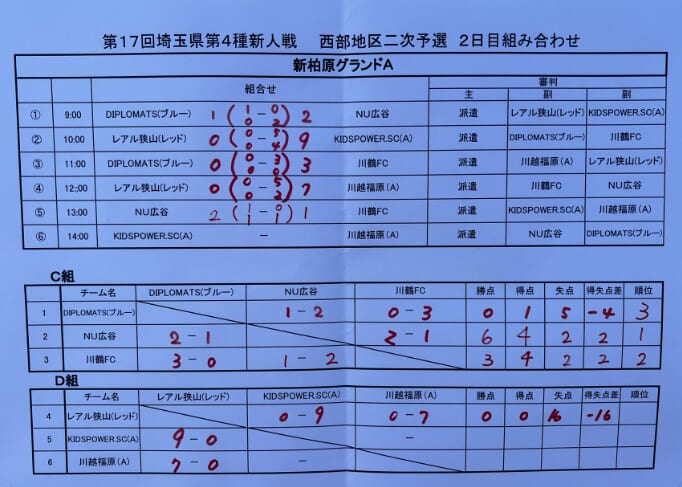 第17回埼玉県第4種新人戦 西部地区二次予選 2日目組み合わせ
新柏原グランドA
組合せ 審判
主 副 副
① 9:00 DIPLOMATS(ブルー) 1 (1-0 0-2) 2 NU広谷 派遣 レアル狭山(レッド) KIDSPOWER.SC(A)
② 10:00 レアル狭山(レッド) 0 (0-5 0-4) 9 KIDSPOWER.SC(A) 派遣 DIPLOMATS(ブルー) 川鶴FC
③ 11:00 DIPLOMATS(ブルー) 0 (0-3 0-0) 3 川鶴FC 派遣 川越福原(A) レアル狭山(レッド)
④ 12:00 レアル狭山(レッド) 0 (0-5 0-2) 7 川越福原(A) 派遣 川鶴FC NU広谷
⑤ 13:00 NU広谷 2 (1-0 1-1) 1 川鶴FC 派遣 KIDSPOWER.SC(A) 川越福原(A)
⑥ 14:00 KIDSPOWER.SC(A) - 川越福原(A) 派遣 NU広谷 DIPLOMATS(ブルー)
C組
チーム名 DIPLOMATS(ブルー) NU広谷 川鶴FC 勝点 得点 失点 得失点差 順位
1 DIPLOMATS(ブルー) 1-2 0-3 0 1 5 -4 3
2 NU広谷 2-1 2-1 6 4 2 2 1
3 川鶴FC 3-0 1-2 3 4 2 2 2
D組
チーム名 レアル狭山(レッド) KIDSPOWER.SC(A) 川越福原(A) 勝点 得点 失点 得失点差 順位
4 レアル狭山(レッド) 0-9 0-7 0 0 16 -16
5 KIDSPOWER.SC(A) 9-0 -
6 川越福原(A) 7-0 -